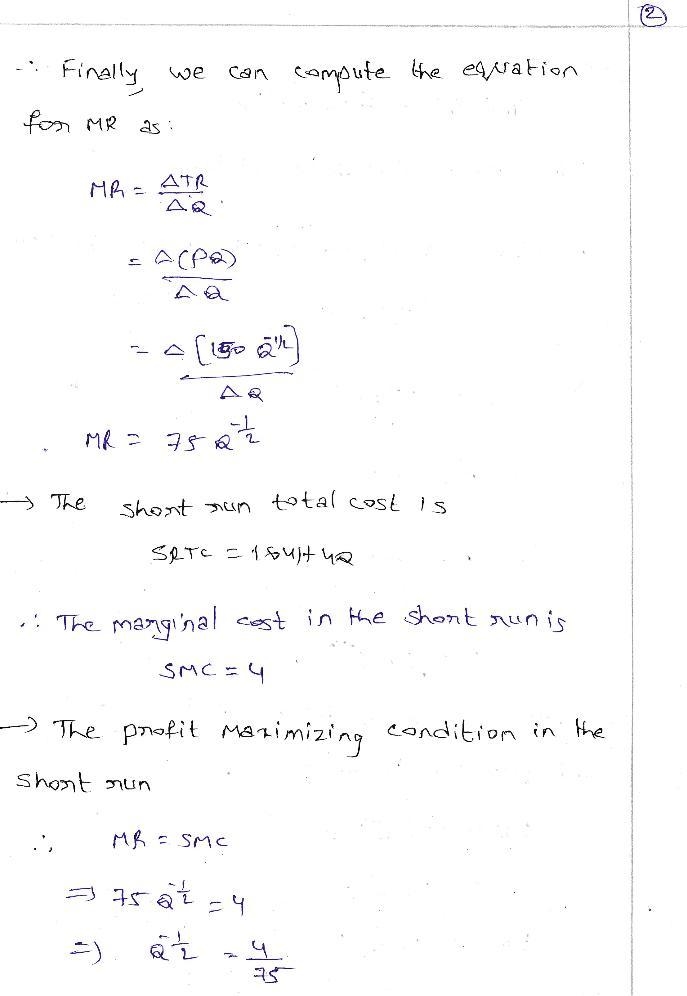 ②
∴ Finally we can compute the equation
for MR as:
MR = ΔTR / ΔQ
= Δ(PQ) / ΔQ
= Δ[150 Q^-1/2] / ΔQ
MR = 75 Q^-1/2
→ The short run total cost is
SRTC = + 4Q
∴ The marginal cost in the short run is
SMC = 4
→ The profit Maximizing condition in the
short run
∴, MR = SMC
⇒ 75 Q^-1/2 = 4
⇒) Q^-1/2 = 4/75